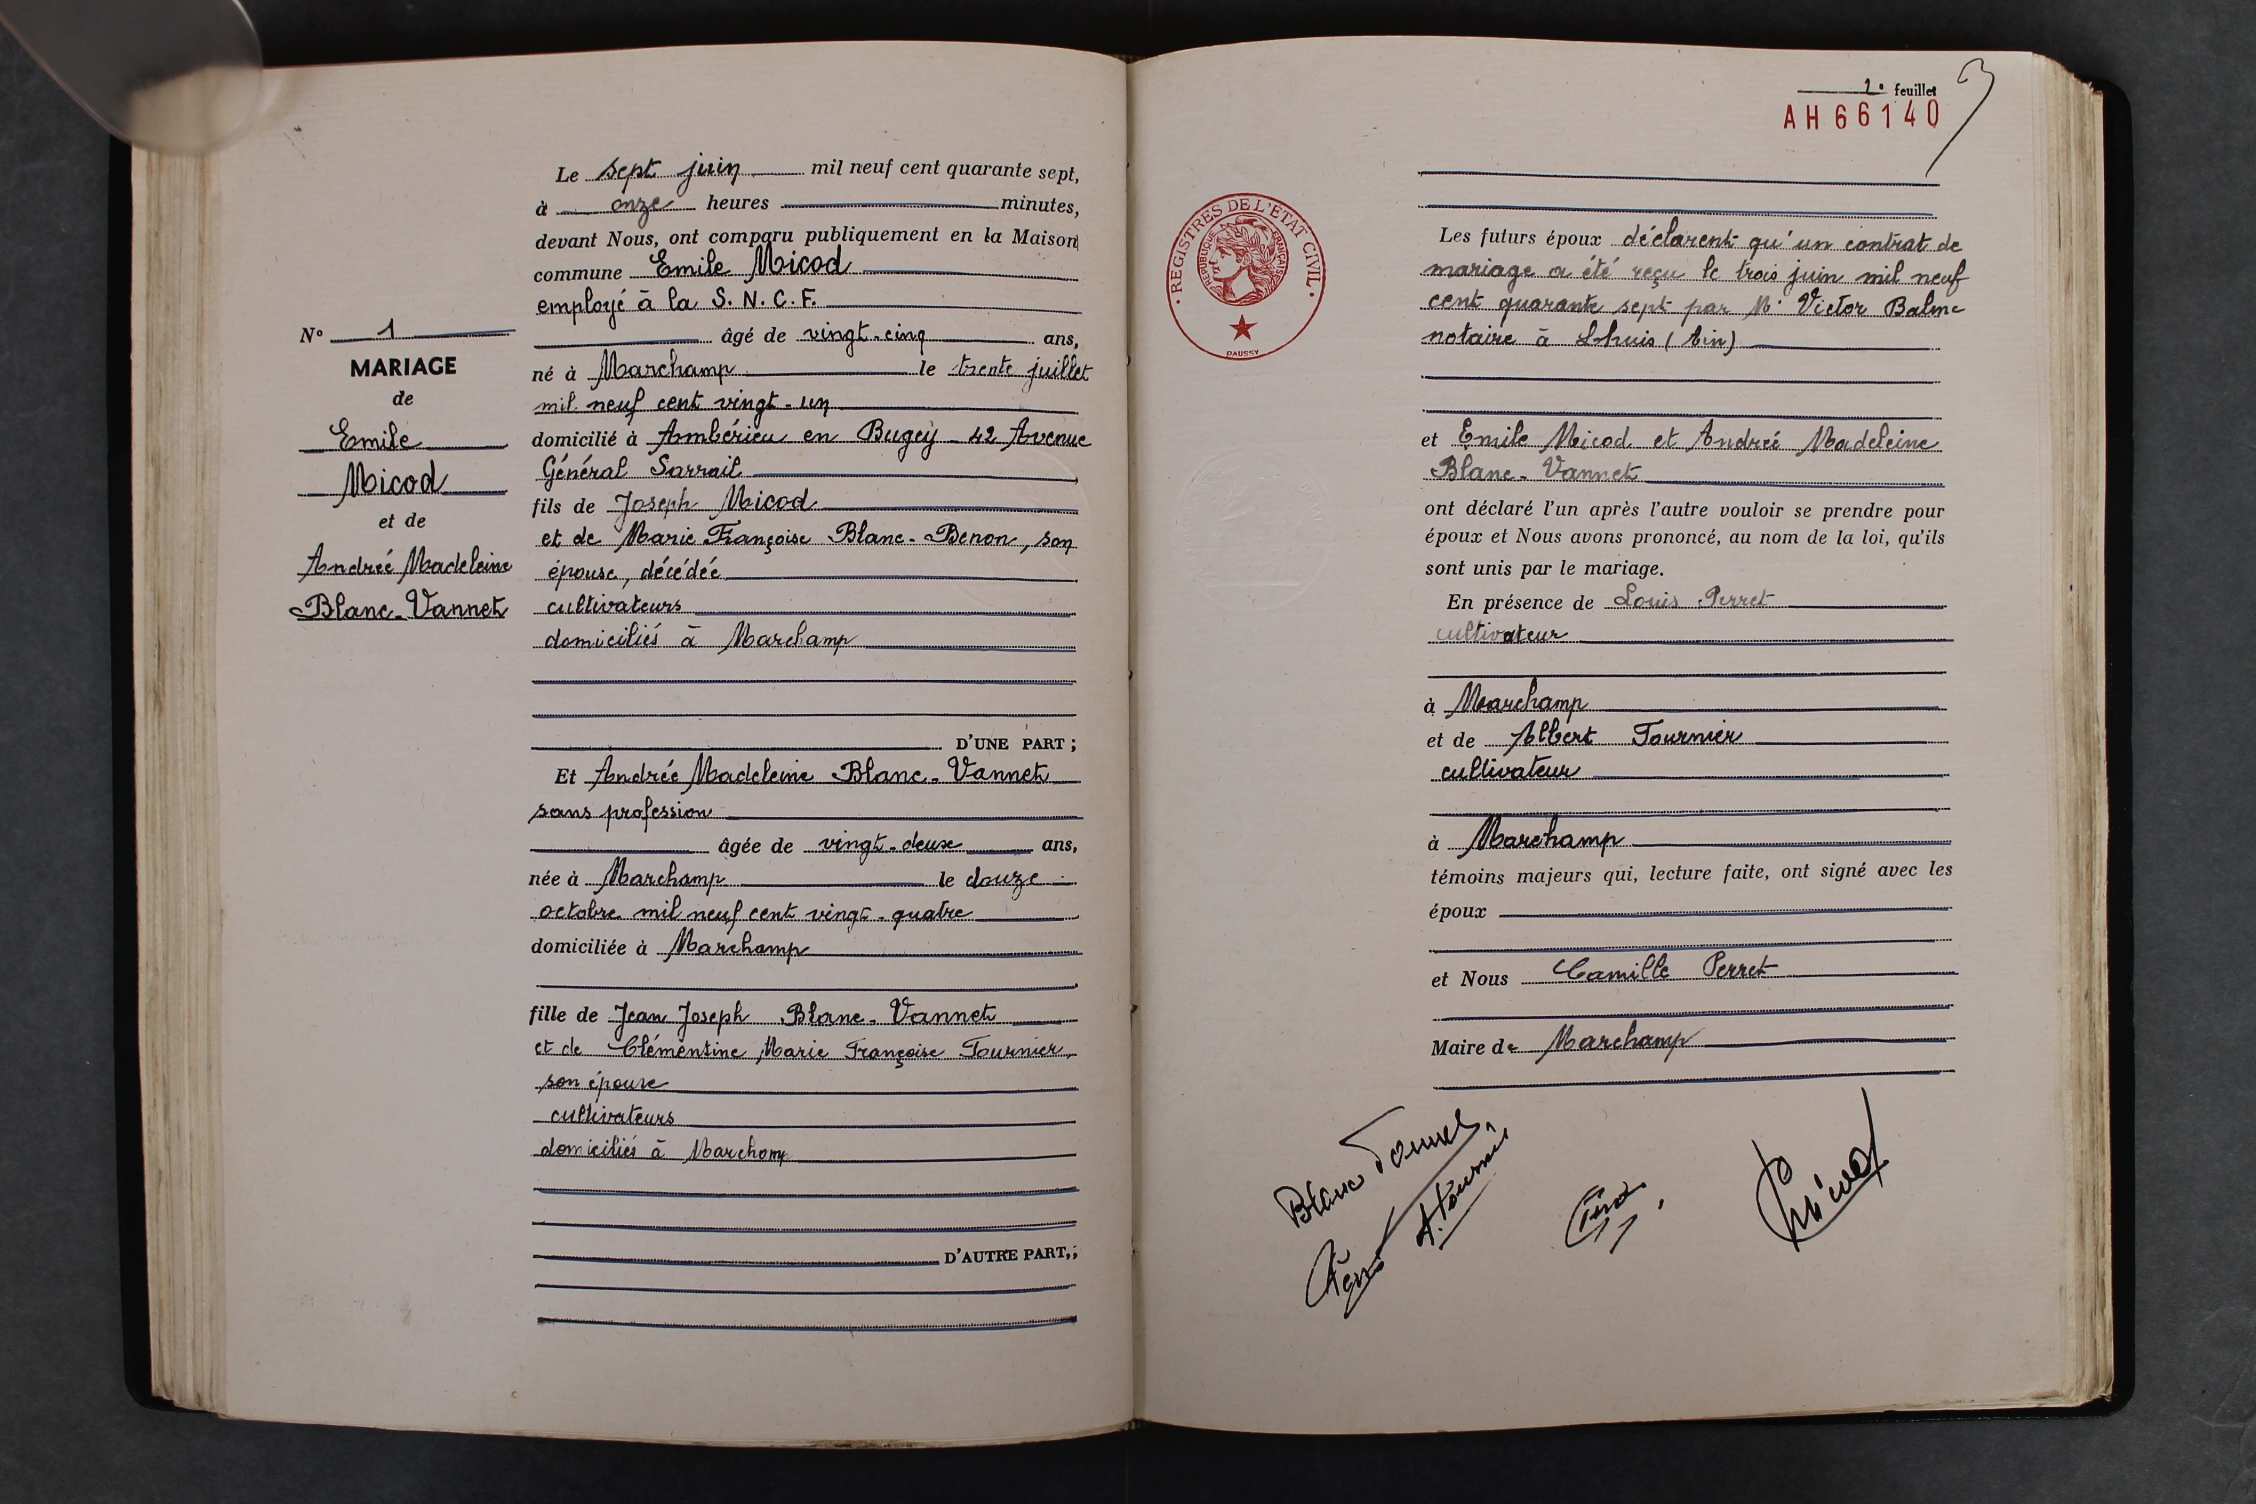 N° 1
MARIAGE
de
Emile
Micod
et de
Andreé Madeleine
Blanc-Vannet
Le sept juin mil neuf cent quarante sept,
à onze heures minutes,
devant Nous, ont comparu publiquement en la Maison
commune Emile Micod
employé à la S. N. C. F.
âgé de vingt-cinq ans,
né à Marchamp le trente juillet
mil neuf cent vingt-un
domicilié à Ambérieu en Bugey - 42 Avenue
Général Sarrail
fils de Joseph Micod
et de Marie Françoise Blanc-Benon, son
épouse, décédée
cultivateurs
domiciliés à Marchamp
D'UNE PART ;
Et Andrée Madeleine Blanc-Vannet
sans profession
âgée de vingt-deux ans,
née à Marchamp le douze
octobre mil neuf cent vingt-quatre
domiciliée à Marchamp
fille de Jean Joseph Blanc-Vannet
et de Clémentine Marie Françoise Tournier
son épouse
cultivateurs
domiciliés à Marchamp
D'AUTRE PART,;
2° feuillet
AH66140
3
REGISTRES DE L'ETAT CIVIL
REPUBLIQUE FRANÇAISE
DAUSSY
Les futurs époux déclarent qu'un contrat de
mariage a été reçu le trois juin mil neuf
cent quarante sept par Me Victor Balme
notaire à Lhuis (Ain)
et Emile Micod et Andreé Madeleine
Blanc-Vannet
ont déclaré l'un après l'autre vouloir se prendre pour
époux et Nous avons prononcé, au nom de la loi, qu'ils
sont unis par le mariage.
En présence de Louis Perret
cultivateur
à Marchamp
et de Albert Tournier
cultivateur
à Marchamp
témoins majeurs qui, lecture faite, ont signé avec les
époux
et Nous Camille Perret
Maire de Marchamp
Blanc Vannet
A. Tournier